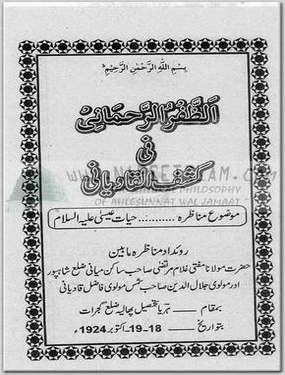 بسم الله الرحمن الرحیم
الظفر الرحمانی
فی
کشف القادیانی
موضوع مناظرہ ........... حیات عیسیٰ علیہ السلام
روئداد مناظرہ مابین
حضرت مولانا مفتی غلام مرتضیٰ صاحب ساکن میانی ضلع شاہپور
اور مولوی جلال الدین صاحب شمس مولوی فاضل قادیانی
بمقام ہریا تحصیل پھالیہ ضلع گجرات
بتواریخ 18-19 اکتوبر 1924ء
PHILOSOPHY
OF AHLESUNNAT WAL JAMAAT